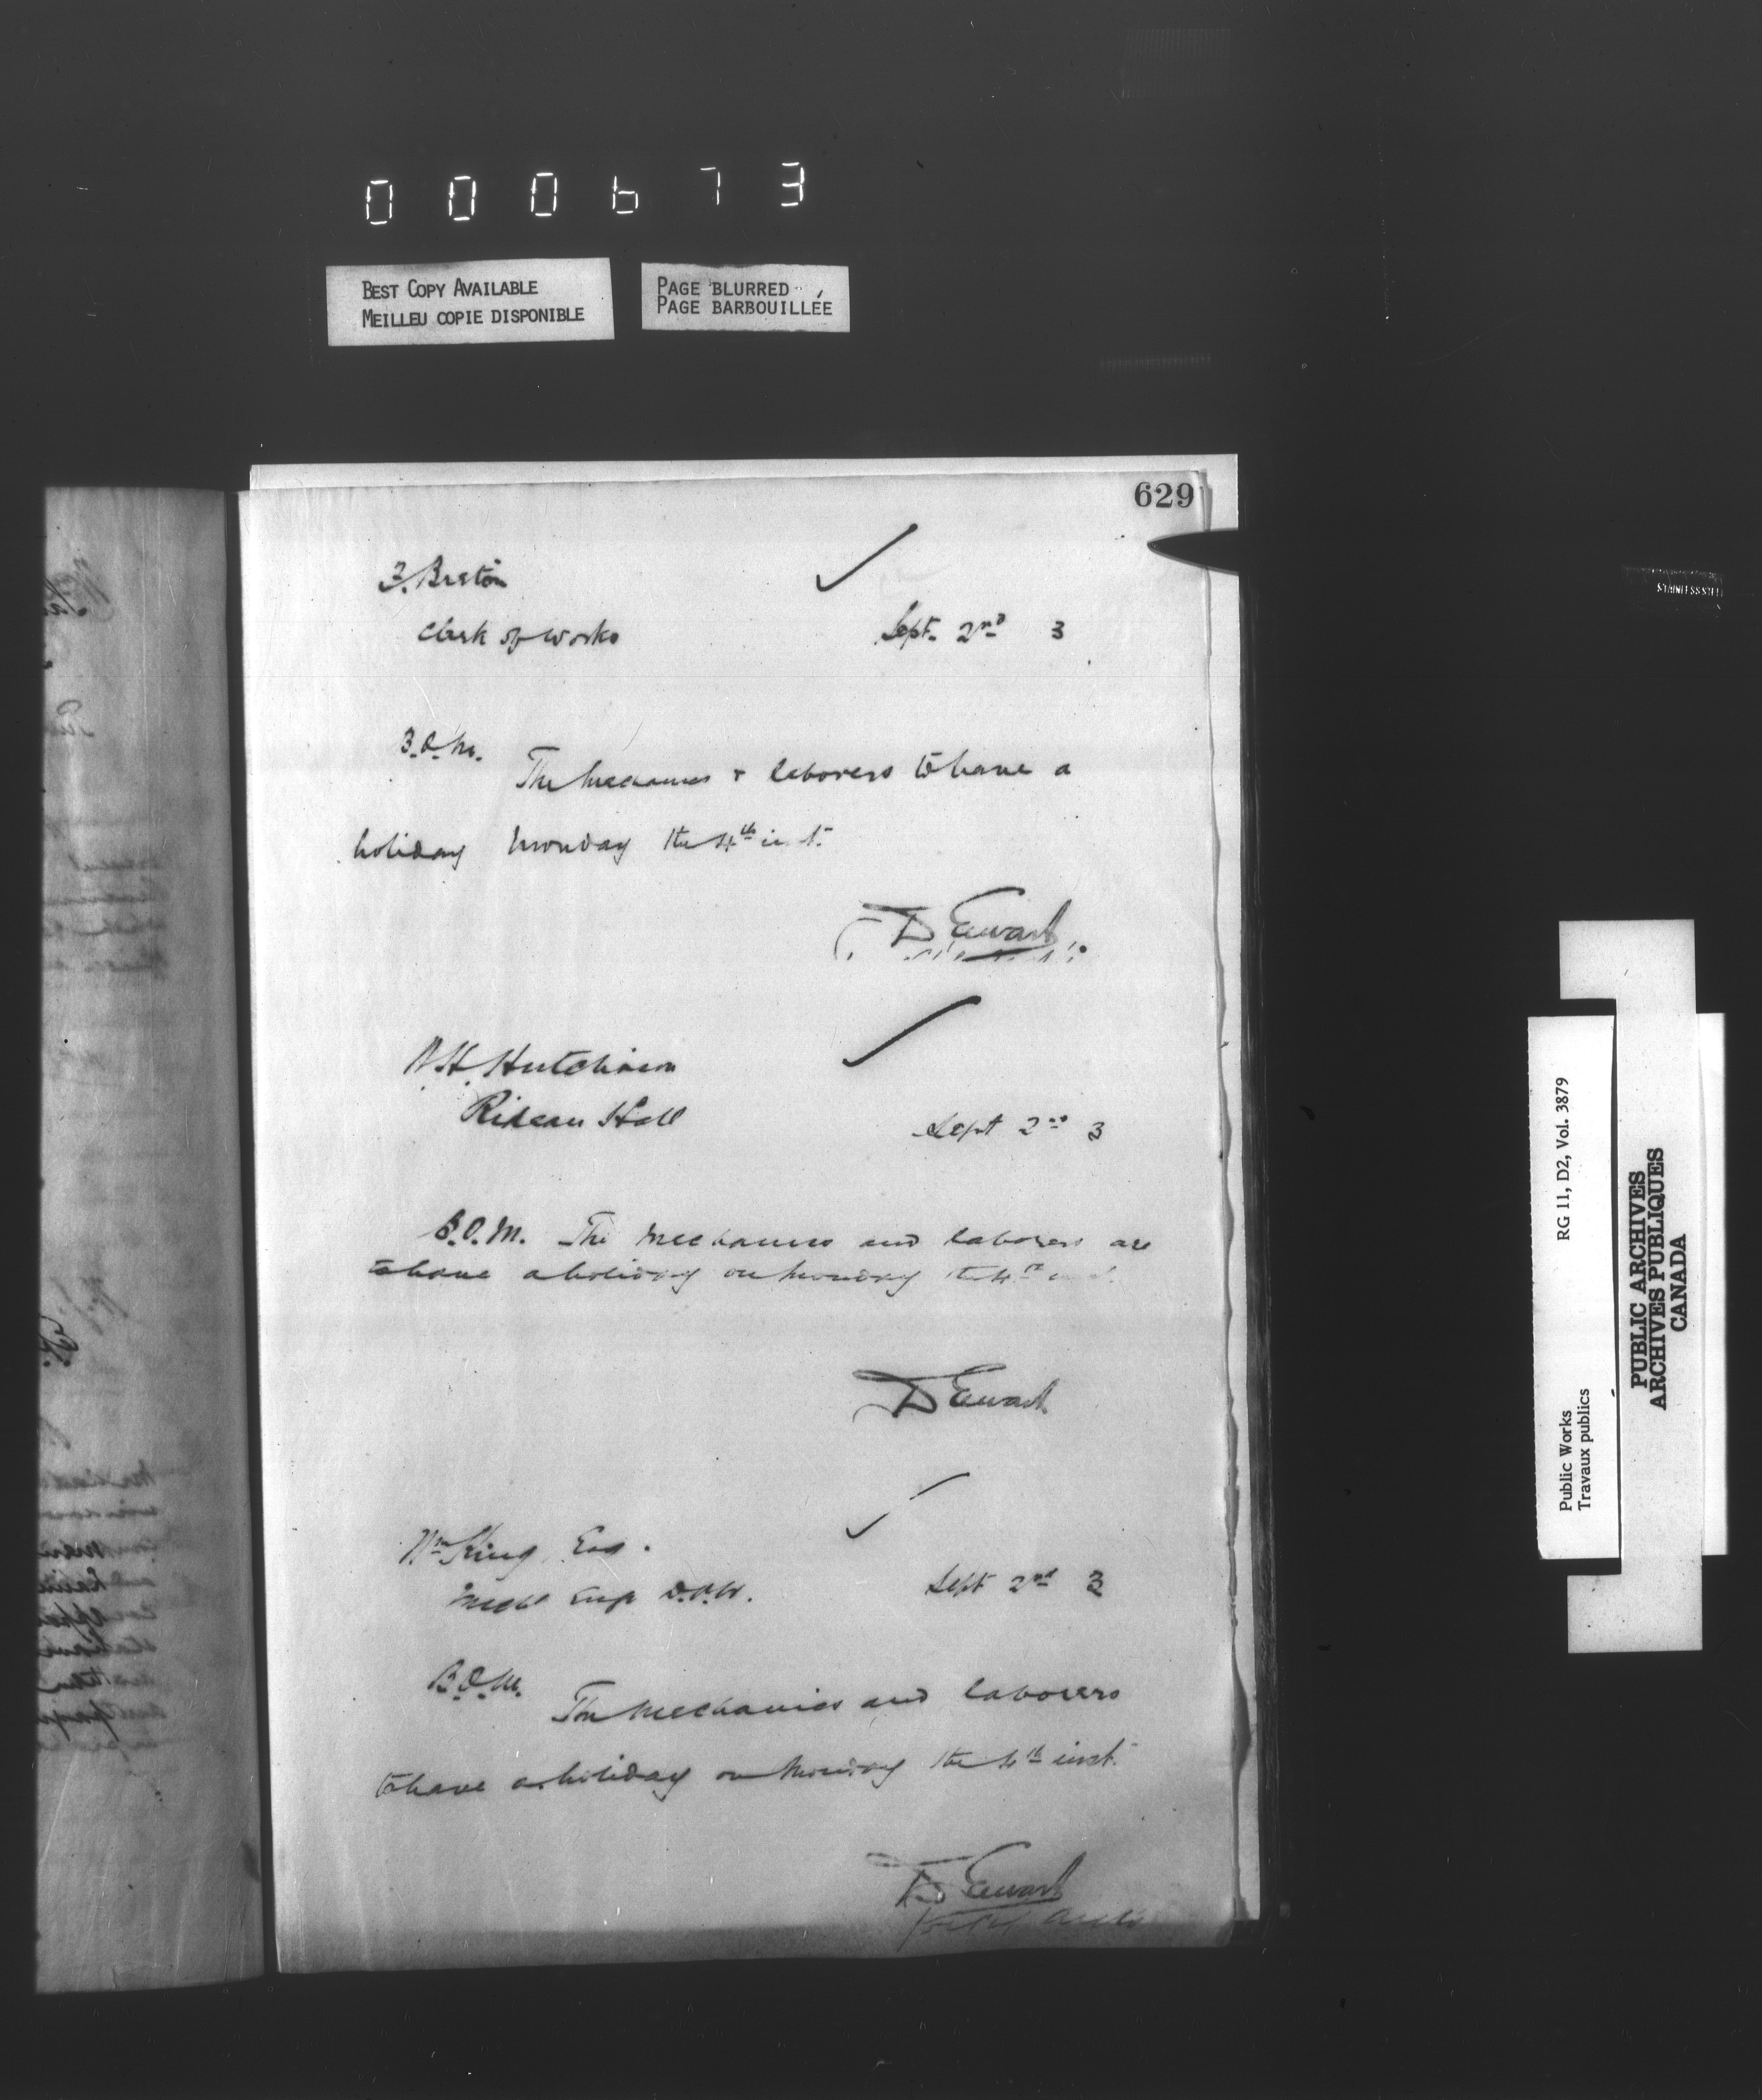 000673
BEST COPY AVAILABLE
MEILLEU COPIE DISPONIBLE
PAGE BLURRED
PAGE BARBOUILLÉE
629
Breton
Clerk of Works
Sept. 2nd 3
B.O.M.
The Mechanics & laborers to have a
holiday Monday the 4th inst.
D Ewart
H. Hutchison
Rideau Hall
Sept 2nd 3
B.O.M. The Mechanics and laborers are
to have a holiday on Monday the 4th
D Ewart
Wm King, Esq.
Mechl Engr D.P.W.
Sept 2nd 3
B.O.M.
The Mechanics and laborers
to have a holiday on Monday the 4th inst.
D Ewart
RG 11, D2, Vol. 3879
Public Works
Travaux publics
PUBLIC ARCHIVES
ARCHIVES PUBLIQUES
CANADA